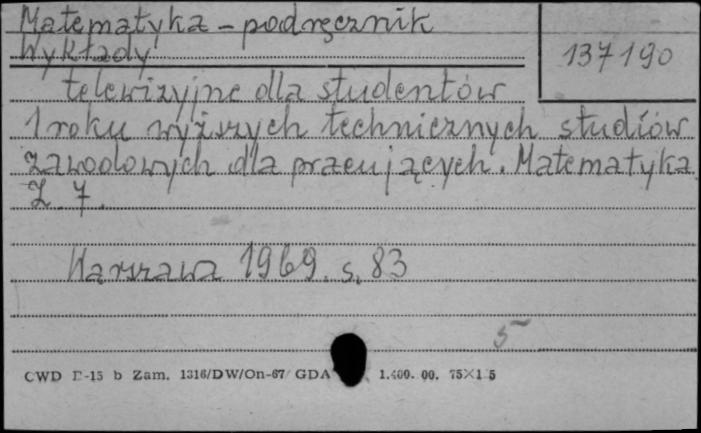 Matematyka - podręcznik
137190
Wykłady
telewizyjne dla studentów
1 roku wyższych technicznych studiów
zawodowych dla pracujących. Matematyka
Z. 7.
Warszawa 1969. s. 83
5
CWD D-15 b Zam. 1316/DW/On-67 GDA 1.400.00. 75×1 5